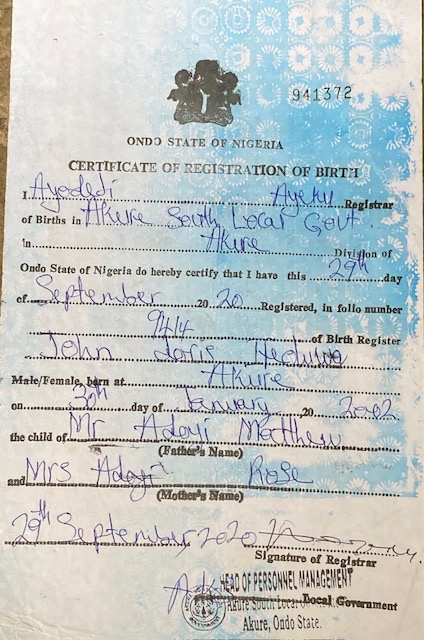 941372
ONDO STATE OF NIGERIA
CERTIFICATE OF REGISTRATION OF BIRTH
I Ayodedi Ayeku Registrar
of Births in Akure South Local Govt.
in Akure Division of
Ondo State of Nigeria do hereby certify that I have this 29th day
of September 20 20 Registered, in folio number
9414 of Birth Register
John Doris Hedwina
Male/Female, born at Akure
on 30th day of January 20 2002
the child of Mr Adoyi Matthew
(Father's Name)
and Mrs Adoyi Rose
(Mother's Name)
29th September 2020
Signature of Registrar
HEAD OF PERSONNEL MANAGEMENT
Local Government
Akure South Local
Akure, Ondo State.